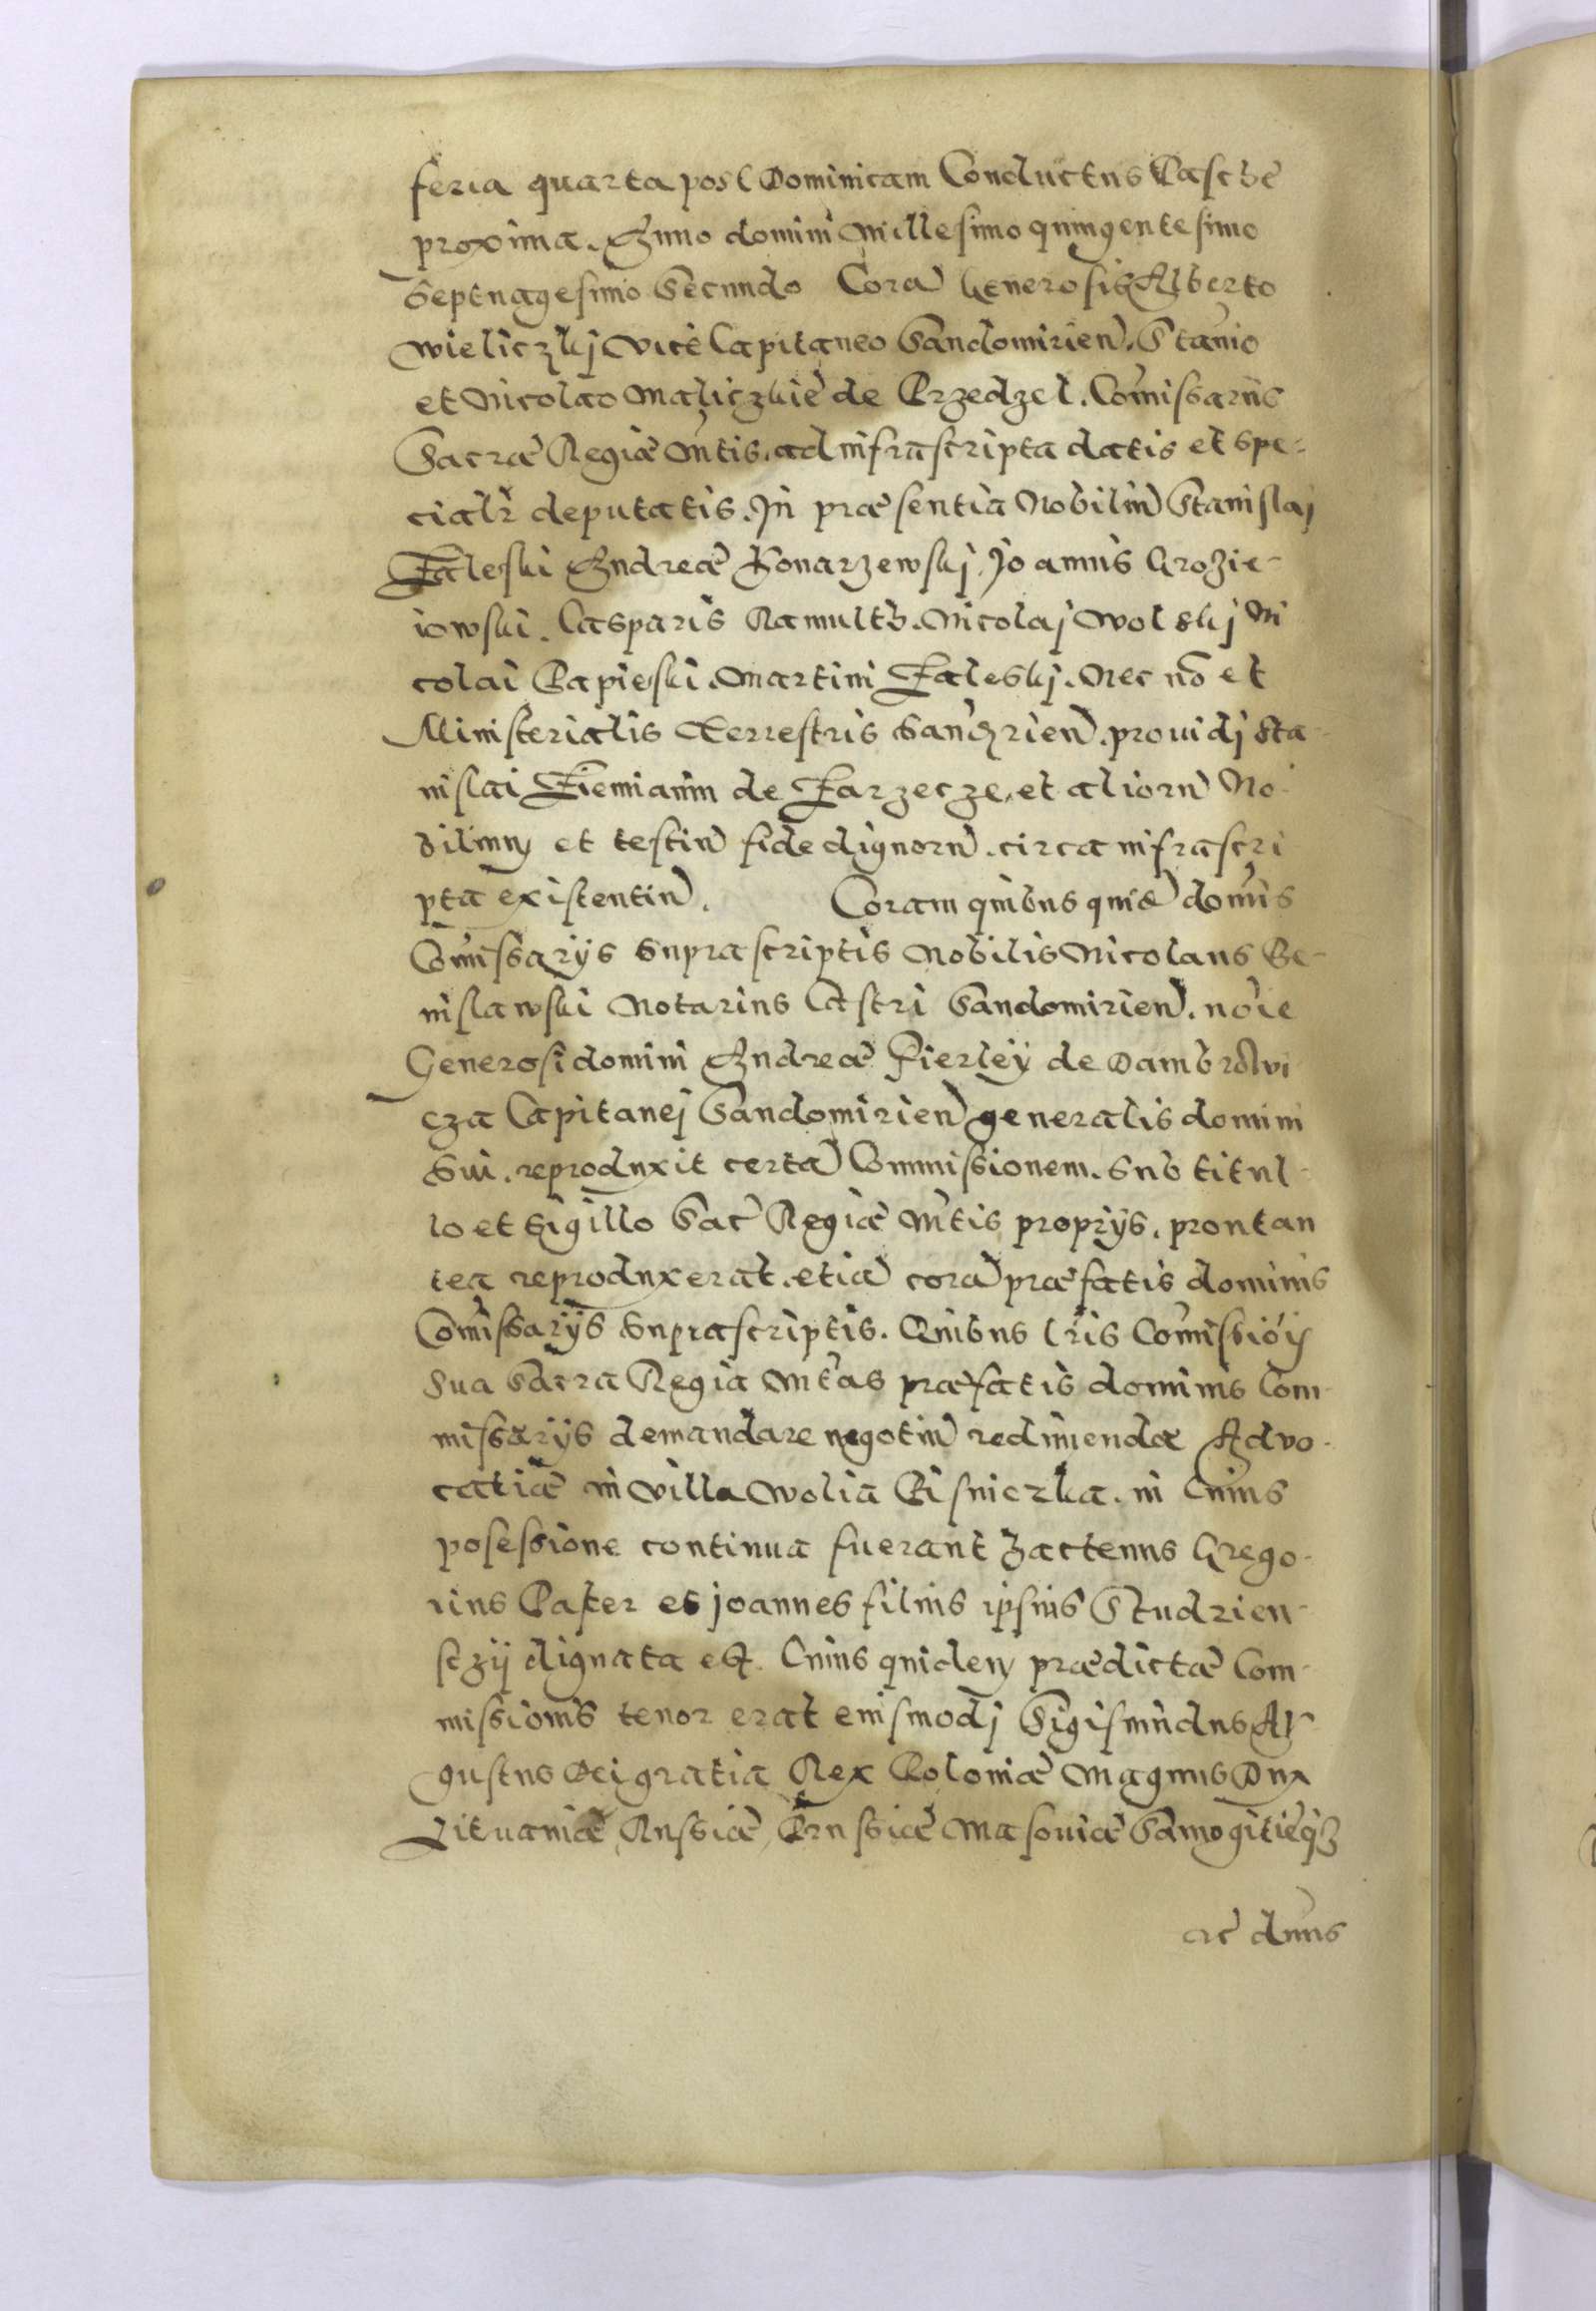 feria quarta post Dominicam Conductus Paschæ
proxima. Anno domini Millesimo quingentesimo
Septuagesimo Secundo Corã Generosis Alberto
Wieliczkj Vice Capitaneo Sandomirien̄. Stanio
et Nicolao Maliczkie de Przedzel. Com̃issariis
Sacræ Regiæ Mtis. ad infrascripta datis et spe-
cialr̃ deputatis. In præsentia Nobiliũ Stanislaj
Zaleski Andreæ Konarzewskj. Joannis Grozie-
iowski. Casparis Ramultb. Nicolaj Wolskj Ni
colai Papieski. Martini Zaleskj. Nec nõ et
Ministerialis Terrestris Sandrien̄. prouidj Sta-
nislai Ziemianin de Zarzecze, et aliorũ No-
bilium et testiũ fide dignorũ. circa infrascri
pta existentiũ. Coram quibus quid domis
Com̃issarijs suprascriptis Nobilis Nicolaus Be-
nislawski Notarius Castri Sandomirien̄. noie
Generosi domini Andreæ Fierley de Dambrowi
cza Capitanej Sandomirien̄ generalis domini
Sui. reproduxit certã Commissionem. Sub titul-
lo et Sigillo Sac̃ Regiæ Mtis proprijs. prout an
tea reproduxerat. etiã corã præfatis dominis
Com̃issarijs suprascriptis. Quibus lr̃is Com̃issiõis
Sua Sacra Regia Mtas præfatis dominis Com-
missarijs demandare negotiũ redimendæ Advo-
catiæ in villa Wolia Bisniczka. in Cuius
posessione continua fuerant hactenus Grego-
rius Pater et Joannes filius ipsius Studzien-
sczij dignata est. Cuius quidem prædictæ Com-
missionis tenor erat eiusmodj Sigismũdus Au-
gustus Dei gratia Rex Poloniæ Magnus Dux
Lituaniæ Russiæ Prussiæ Masoviæ Samogitieq3
ac dnus